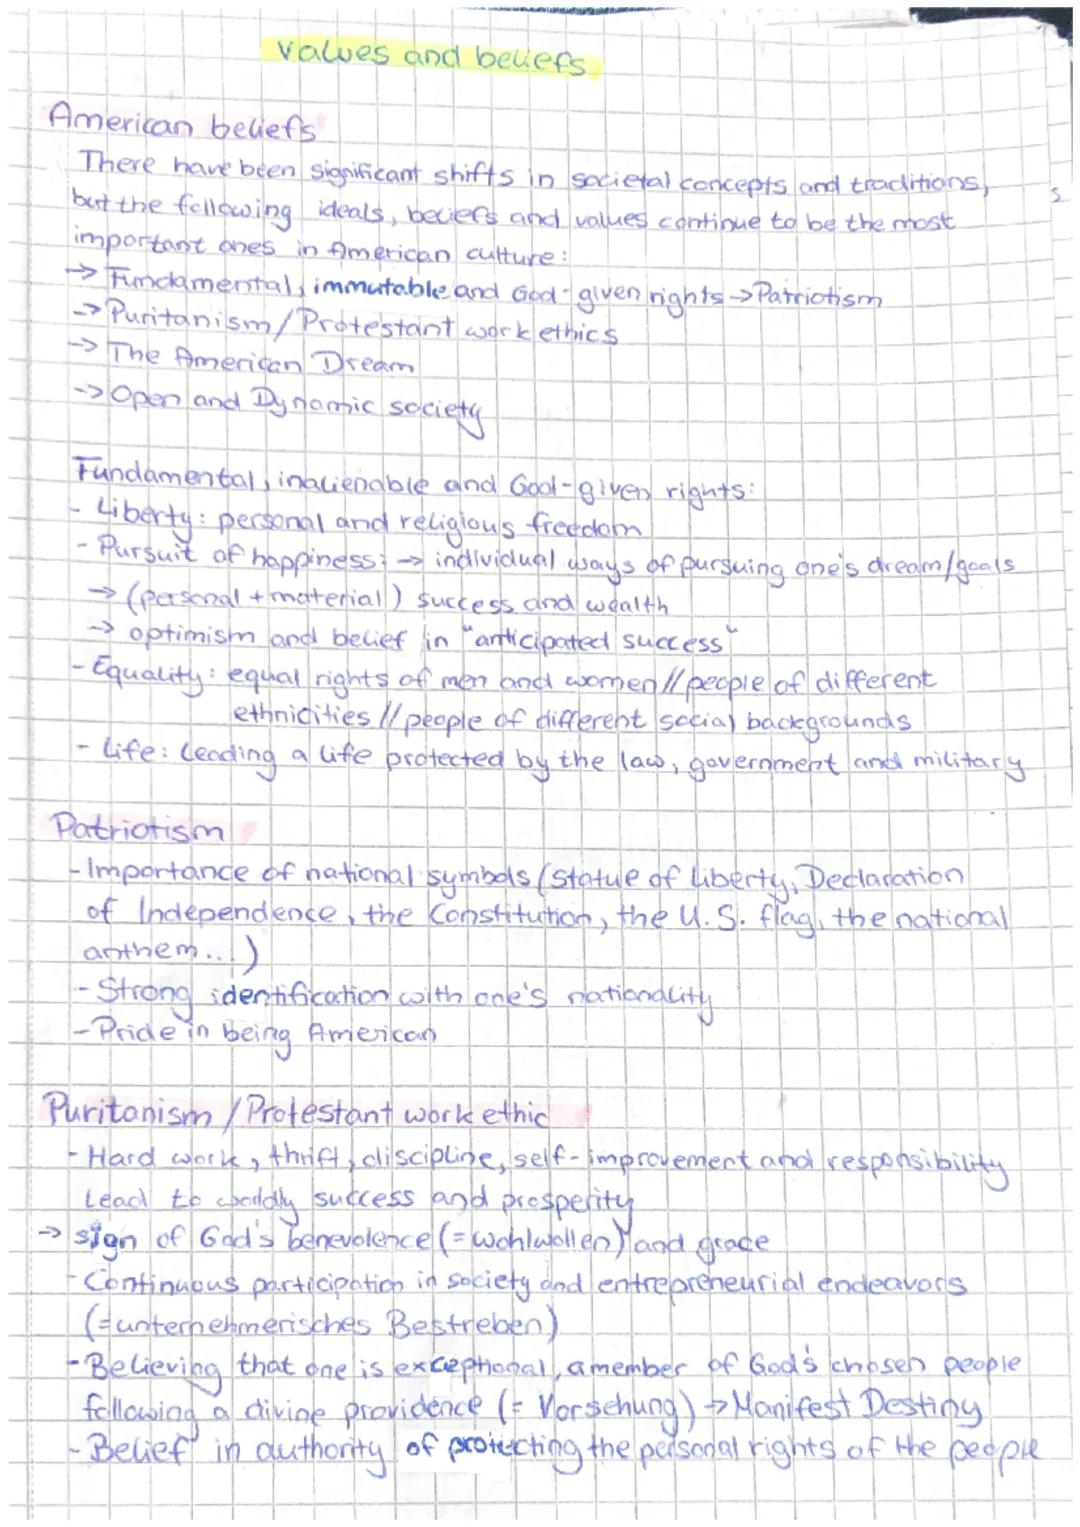 values and beliefs
American beliefs
There have been significant shifts in societal concepts and traditions,
but the following ideals, beliefs and values continue to be the most
important ones in American culture:
-> Fundamental, immutable and God-given rights -> Patriotism
-> Puritanism/Protestant work ethics
-> The American Dream
-> Open and Dynamic society
Fundamental, inalienable and God-given rights:
- Liberty: personal and religious freedom
- Pursuit of happiness: -> individual ways of pursuing one's dream/goals
-> (personal + material) success and wealth
-> optimism and belief in "anticipated success"
- Equality: equal rights of men and women // people of different
ethnicities // people of different social backgrounds
- Life: Leading a life protected by the law, government and military
Patriotism
- Importance of national symbols (Statue of Liberty, Declaration
of Independence, the Constitution, the U.S. flag, the national
anthem...)
- Strong identification with one's nationality
- Pride in being American
Puritanism / Protestant work ethic
- Hard work, thrift, discipline, self-improvement and responsibility
Lead to worldly success and prosperity
-> sign of God's benevolence (= wohlwollen) and grace
- Continuous participation in society and entrepreneurial endeavors
(=unternehmerisches Bestreben)
- Believing that one is exceptional, a member of God's chosen people
following a divine providence (= Vorsehung) -> Manifest Destiny
- Belief in authority of protecting the personal rights of the people